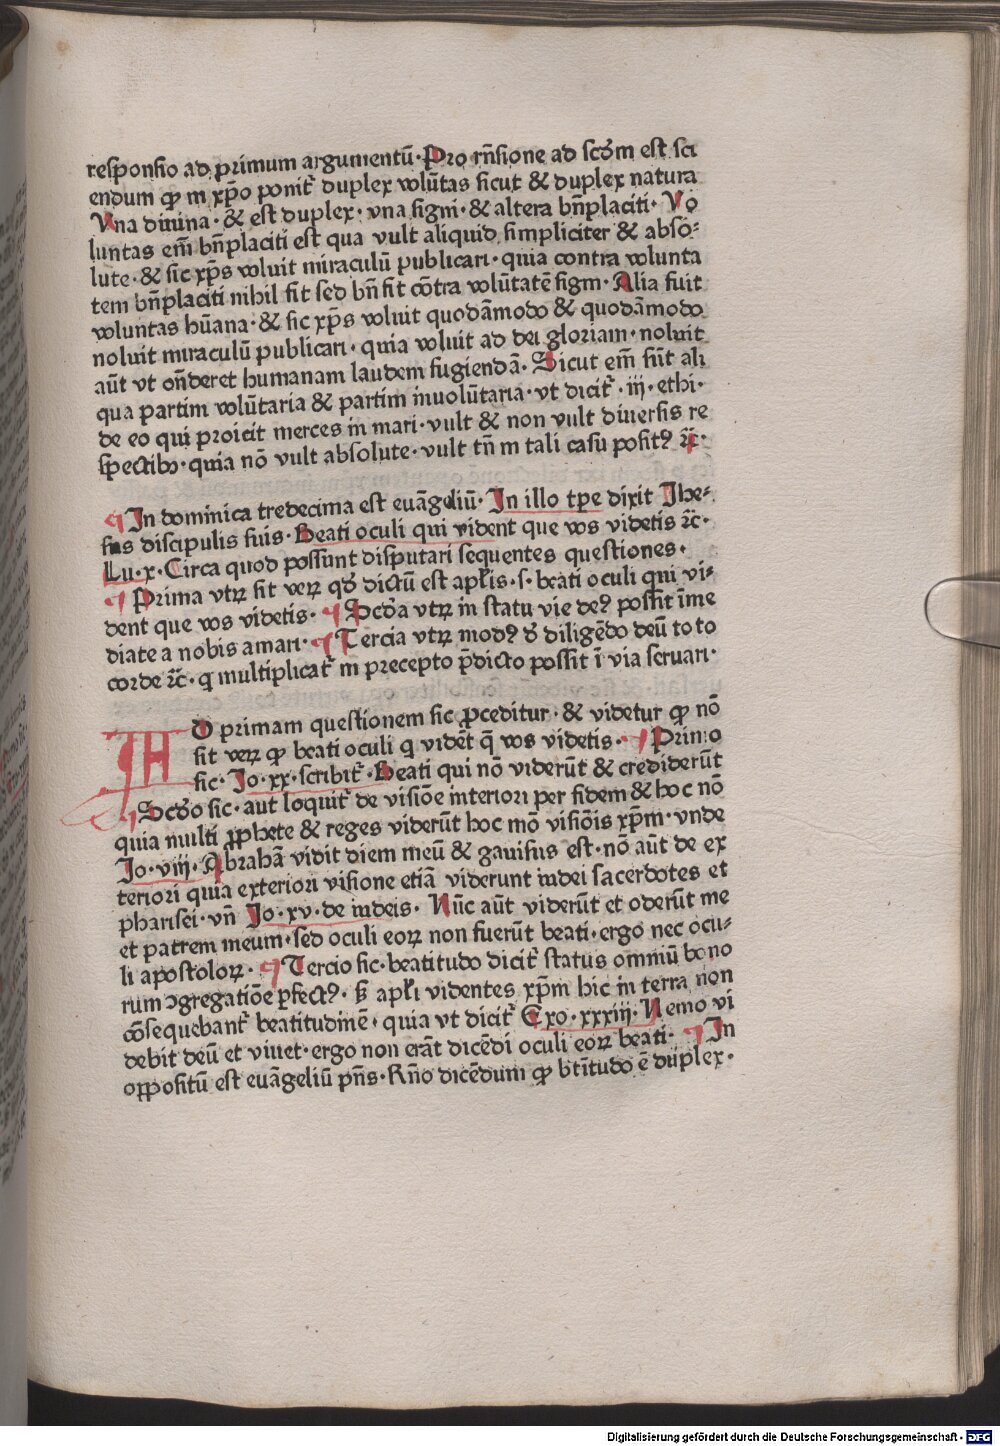 responsio ad primum argumentū· Pro rn̄sione ad scd̄m est sci
endum ꝙ in xp̄o ponit᷑ duplex volūtas sicut & duplex natura
Vna diuina· & est duplex· vna signi· & altera bn̄placiti· Vo
luntas em̄ bn̄placiti est qua vult aliquid simpliciter & abso⸗
lute· & sic xp̄s voluit miraculū publicari· quia contra volunta
tem bn̄placiti nihil fit sed bn̄ fit cōtra volūtatē signi· Alia fuit
voluntas hūana· & sic xp̄s voluit quodāmodo & quodāmodo
noluit miraculū publicari· quia voluit ad dei gloriam· noluit
aūt vt on̄deret humanam laudem fugiendā· Sicut em̄ sūt ali
qua partim volūtaria & partim inuolūtaria· vt dicit᷑ ·iij· ethi·
de eo qui proicit merces in mari· vult & non vult diuersis re
spectibꝫ· quia nō vult absolute· vult tn̄ in tali casu positꝰ ꝛc̄·
¶ In dominica tredecima est euāgeliū· In illo tp̄e dixit Ihe⸗
sus discipulis suis· Beati oculi qui vident que vos videtis ꝛc̄·
Lu·x· Circa quod possunt disputari sequentes questiones·
¶ Prima vtꝝ sit veꝝ qd̄ dictū est apl̄is·s· beati oculi qui vi⸗
dent que vos videtis· ¶ Scd̄a vtꝝ in statu vie deꝰ possit īme
diate a nobis amari· ¶ Tercia vtꝝ modꝰ d̄ diligēdo deū toto
corde ꝛc̄· q multiplicat᷑ in precepto p̄dicto possit ī via seruari·
AD primam questionem sic ꝓceditur· & videtur ꝙ nō
sit veꝝ ꝙ beati oculi q vidēt q̄ vos videtis· ¶ Primo
sic· Io·xx·scribit᷑· Beati qui nō viderūt & crediderūt
¶ Scd̄o sic· aut loquit᷑ de visiōe interiori per fidem & hoc nō
quia multi ꝓphete & reges viderūt hoc mō visiōis xp̄m· vnde
Io·viij· Abrahā vidit diem meū & gauisus est· nō aūt de ex
teriori quia exteriori visione etiā viderunt iudei sacerdotes et
pharisei· vn̄ Io·xv·de iudeis· Nūc aūt viderūt et oderūt me
et patrem meum· sed oculi eoꝝ non fuerūt beati· ergo nec ocu⸗
li apostoloꝝ· ¶ Tercio sic· beatitudo dicit᷑ status omniū bono
rum ꝯgregatiōe ꝑfectꝰ· sꝫ apl̄i videntes xp̄m hic in terra non
cōsequebant᷑ beatitudinē· quia vt dicit᷑ Exo·xxxiij· Nemo vi
debit deū et viuet· ergo non erāt dicēdi oculi eoꝝ beati· ¶ In
oppositū est euāgeliū pn̄s· Rn̄o dicēdum ꝙ bt̄itudo ē duplex·
Digitalisierung gefördert durch die Deutsche Forschungsgemeinschaft · DFG